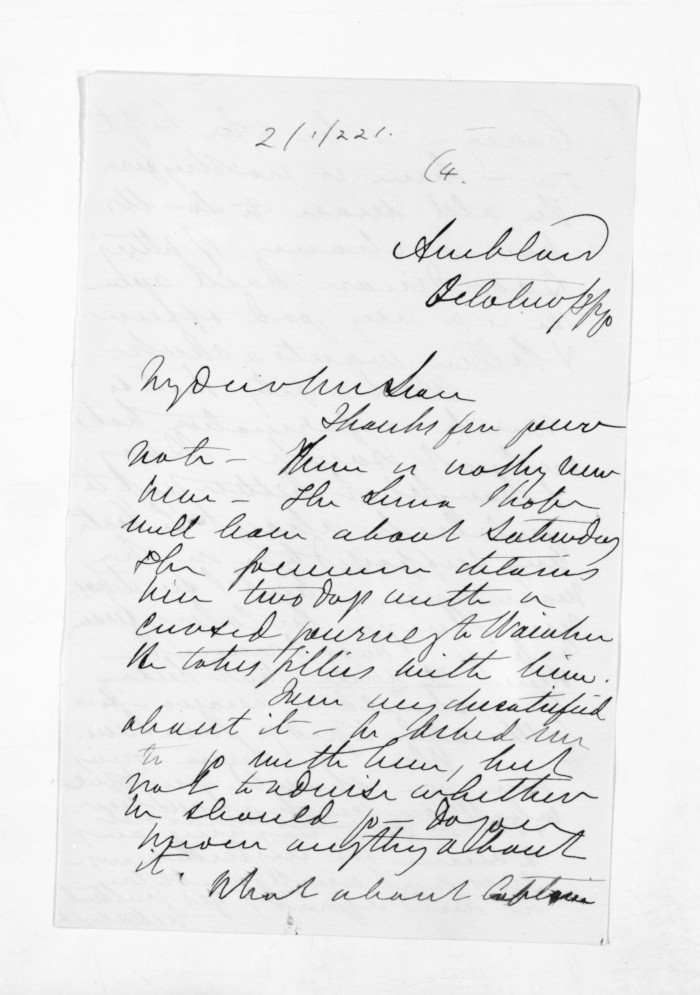 2/1/221.
(4.
Auckland
October /70
My Dear McLean
Thanks for your
note — There is nothing new
here — The Luna I hope
will leave about Saturday
The
detains
him two days with a
cursed journey to Waiuku
He takes Gillies with him.
I am very dissatisfied
about it — he asked me
to go with him, but
not to advise whether
he should go — Do you
know anything about
it.
What about Captain